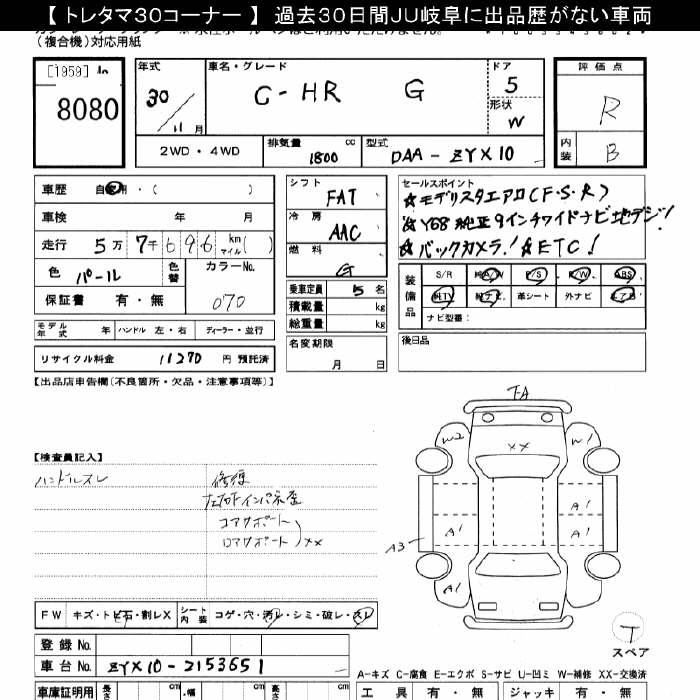 【 トレタマ３０コーナー 】 過去３０日間ＪＵ岐阜に出品歴がない車両
（複合機）対応用紙
[1959]
8080
年式
30 / 11 月
車名・グレード
C-HR G
ドア
5
形状
W
評価点
R
内装
B
2WD ・ 4WD
排気量
1800 cc
型式
DAA-ZYX10
車歴 自家用・( )
車検 年 月
走行 5万 7千 6 9 6 km マイル ( )
色 パール
色替
カラーNo.
070
保証書 有・無
シフト
FAT
冷房
AAC
燃料
G
乗車定員 5 名
積載量 kg
総重量 kg
セールスポイント
☆モデリスタエアロ(F・S・R)
☆Y68 純正9インチワイドナビ地デジ!
☆バックカメラ! ☆ETC!
装備品
S/R 純A/W P/S P/W ABS
純TV 純ナビ 革シート 外ナビ エアB
ナビ型番：
モデル年式 年 ハンドル 左・右 ディーラー・並行
リサイクル料金 11270 円 預託済
名変期限
月 日
後日品
【出品店申告欄（不良箇所・欠品・注意事項等）】
【検査員記入】
ハンドルスレ
修復
コアサポート
ロアサポート ××
FA
W2
××
W1
A1
A1
A1
A3
A1
T
スペア
FW キズ・トビ石・割レX シート内装 コゲ・穴・汚レ・シミ・破レ・スレ
登録 No.
車台 No. ZYX10-2153651
A-キズ C-腐食 E-エクボ S-サビ U-凹ミ W-補修 XX-交換済
車庫証明用 長さ cm 幅 cm 高さ cm
工具 有・無 ジャッキ 有・無